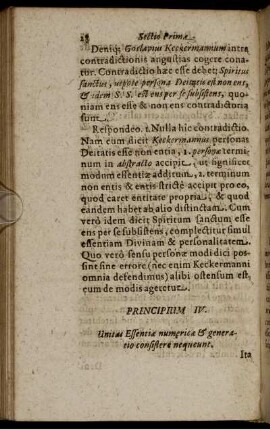 28 Sectio Prima
Deniq; Goslavius Keckermannum intra
contradictionis angustias cogere cona-
tur. Contradictio hæc esse debet; Spiritus
sanctus, utpote persona Deitatis est non ens,
& idem S. S. est ens per se subsistens, quo-
niam ens esse & non ens contradictoria
sunt.
Respondeo. 1. Nulla hic contradictio.
Nam cum dicit Keckermannus personas
Deitatis esse non entia, 1. personæ termi-
num in abstracto accipit, ut significet
modum essentiæ additum, 2. terminum
non entis & entis strictè accipit pro eo,
quod caret entitate propria, & quod
eandem habet ab alio distinctam. Cum
verò idem dicit Spiritum sanctum esse
ens per se subsistens, complectitur simul
essentiam Divinam & personalitatem.
Quo verò sensu personæ modi dici pos-
sint sine errore (nec enim Keckermanni
omnia defendimus) alibi ostensum est,
cum de modis ageretur.
PRINCIPIUM IV.
Unitas Essentiæ numerica & genera-
tio consistere nequeunt.
Ita